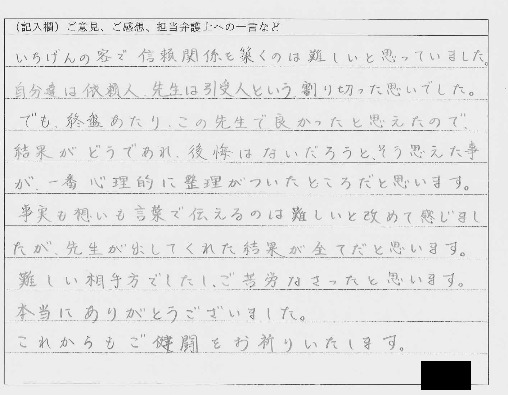 (記入欄)ご意見、ご感想、担当弁護士への一言など
いちげんの客で信頼関係を築くのは難しいと思っていました。
自分達は依頼人、先生は引受人という割り切った思いでした。
でも、終盤あたり、この先生で良かったと思えたので、
結果がどうであれ、後悔はないだろうと、そう思えた事
が、一番心理的に整理がついたところだと思います。
事実も想いも言葉で伝えるのは難しいと改めて感じまし
たが、先生が出してくれた結果が全てだと思います。
難しい相手方でしたし、ご苦労なさったと思います。
本当にありがとうございました。
これからもご健闘をお祈りいたします。